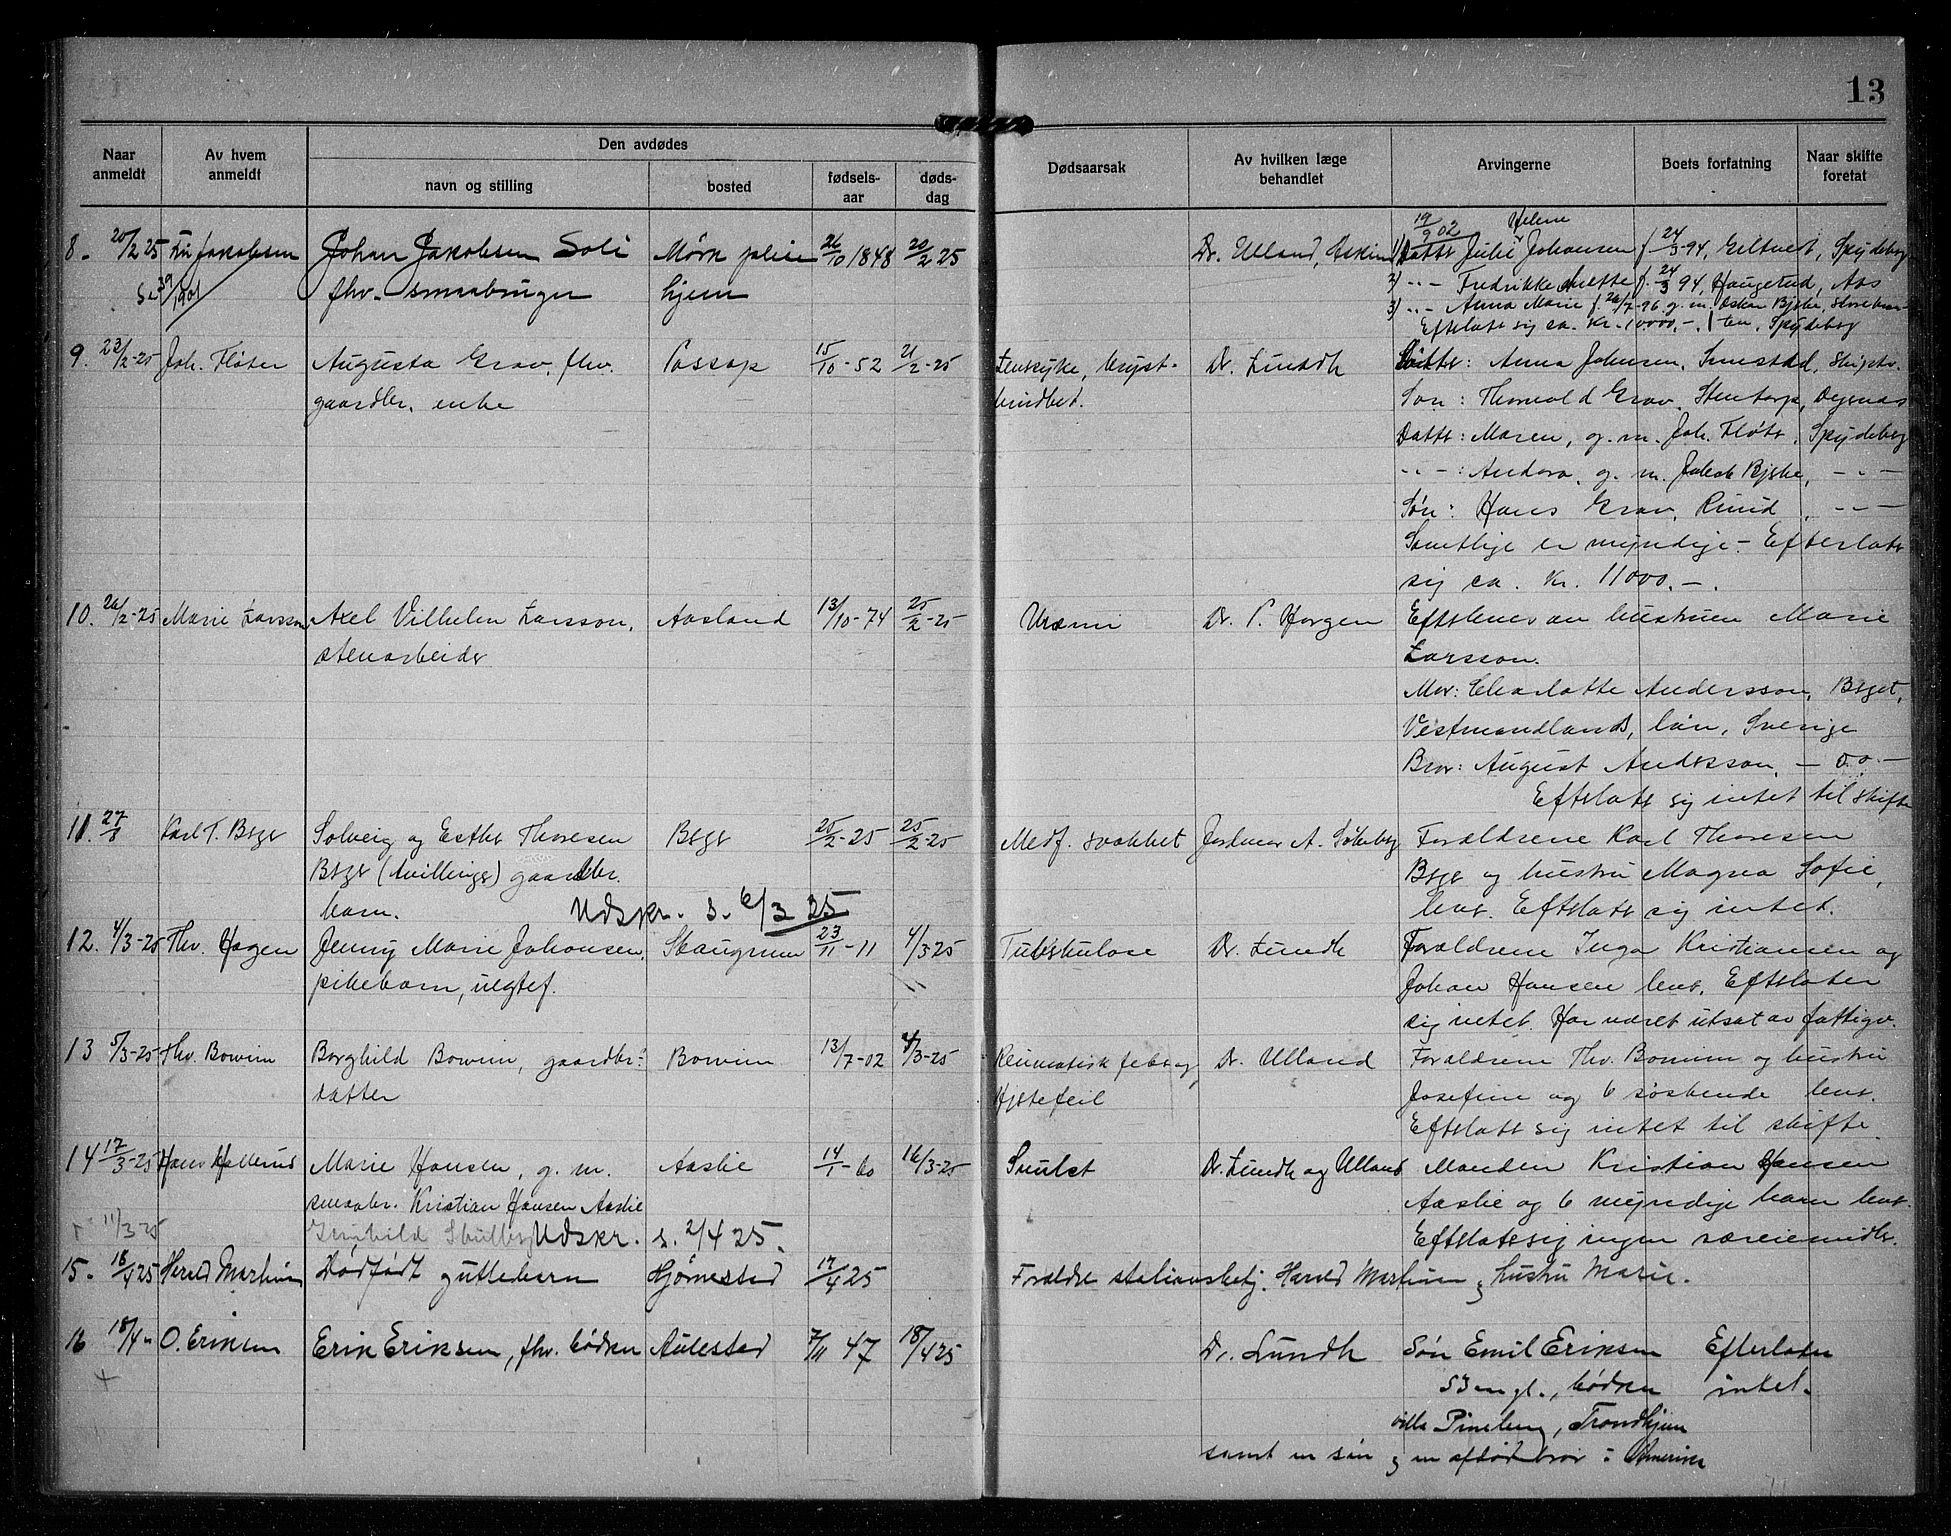 13
Naar anmeldt
Av hvem anmeldt
Den avdødes
navn og stilling
bosted
fødsels-aar
døds-dag
Dødsaarsak
Av hvilken læge behandlet
Arvingerne
Boets forfatning
Naar skifte foretat
8. 20/2 25 Jakobsen Johan Jakobsen Soli Mørk pleie 26/10 1848 20/2 25 Dr. Ulland, Askim
fhv. smaabruger hjem
19/9 02 Helene
1) Datter Julie Johansen f 24/3-94, Spydeberg
2) " - Fredrikke Anette f. 24/3 94, Haugstad, Aas
3) " - Anna Marie f 26/7-96 g. m. Oskar Bjerke,
Efterlatt sig ca. Kr. 10000,-. Spydeberg
9. 23/2-25 Joh. Fløter Augusta Grav, fhv. Possop 15/10-52 21/2-25 bryst- Dr. Lundh Datter: Anna Johansen, Smestad, Skiptv.
gaardbr. enke
Søn: Thorvald Grav, Stentorp,
Datter: Maren, g. m. Joh. Fløter, Spydeberg
" - : Andora, g. m. Jakob Bjerke, - " -
Søn: Hans Grav, Rud, - " -
Samtlige er myndige. Efterlatt
sig ca. Kr. 11000.-.
10. 26/2-25 Marie Larsson Axel Vilhelm Larsson, Aasland 13/10-74 25/2-25 Uræmi Dr. P. Horgen Efterlenes av hustruen Marie
stenarbeider Larsson.
Mor: Charlotte Andersson, Berget,
Vestmandlands län, Sverige
Bror: August Andersson, - o.o. -
Efterlatt sig intet til skifte
11. 27/ Karl T. Berger Solveig og Esther Thoresen Berger 25/2-25 25/2-25 Medf. svakhet Jordmor A. Forældrene Karl Thoresen
Berger (tvillinger) gaardbr. Berger og hustru Magna Sofie,
barn. Udskr. s. 6/3 25 lever. Efterlatt sig intet.
12. 4/3-25 Thv. Hagen Jenny Marie Johansen, Skaugrum 23/11-11 4/3 25 Tuberkulose Dr. Lundh Forældrene Inga Kristiansen og
pikebarn, uegtef. Johan Hansen lever. Efterlater
sig intet. Har været utsat av fattigv.
13 5/3-25 Thv. Bovim Borghild Bovim, gaardbr. Bovim 13/7-02 4/3-25 Reumatisk feber og Dr. Ulland Forældrene Thv. Bovim og hustru
datter Hjertefeil Josefine og 6 søskende lever.
Efterlatt sig intet til skifte.
14 17/3-25 Hans Hallerud Marie Hansen, g. m. Aaslie 14/1-60 16/3-25 Svulst Dr. Lundh og Ulland Manden Kristian Hansen
smaabr. Kristian Hansen Aaslie Aaslie og 6 myndige barn lever.
11/3-25 Udskr. s. 2/4 25. Efterlatt sig ingen særeiemidler.
15. 18/4 25 Harald Martinsen Dødfødt guttebarn Hjørnestad 17/4 25 Forældre stationsbetj. Harald Martinsen og hustru Marie.
16 18/4 " O. Eriksen Erik Eriksen, fhv. bødker Aulestad 7/11 47 18/4 25 Dr. Lundh Søn Emil Eriksen Efterlater
53 aar gl., bødker intet.
villa Pineberg, Trondhjem
samt en søn og en afdød bror i Amerika